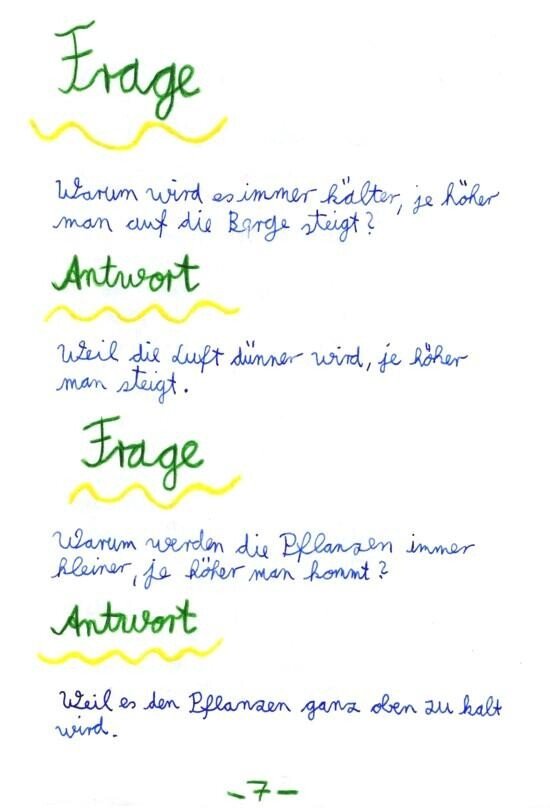 Frage
Warum wird es immer kälter, je höher
man auf die Berge steigt?
Antwort
Weil die Luft dünner wird, je höher
man steigt.
Frage
Warum werden die Pflanzen immer
kleiner, je höher man kommt?
Antwort
Weil es den Pflanzen ganz oben zu kalt
wird.
- 7 -